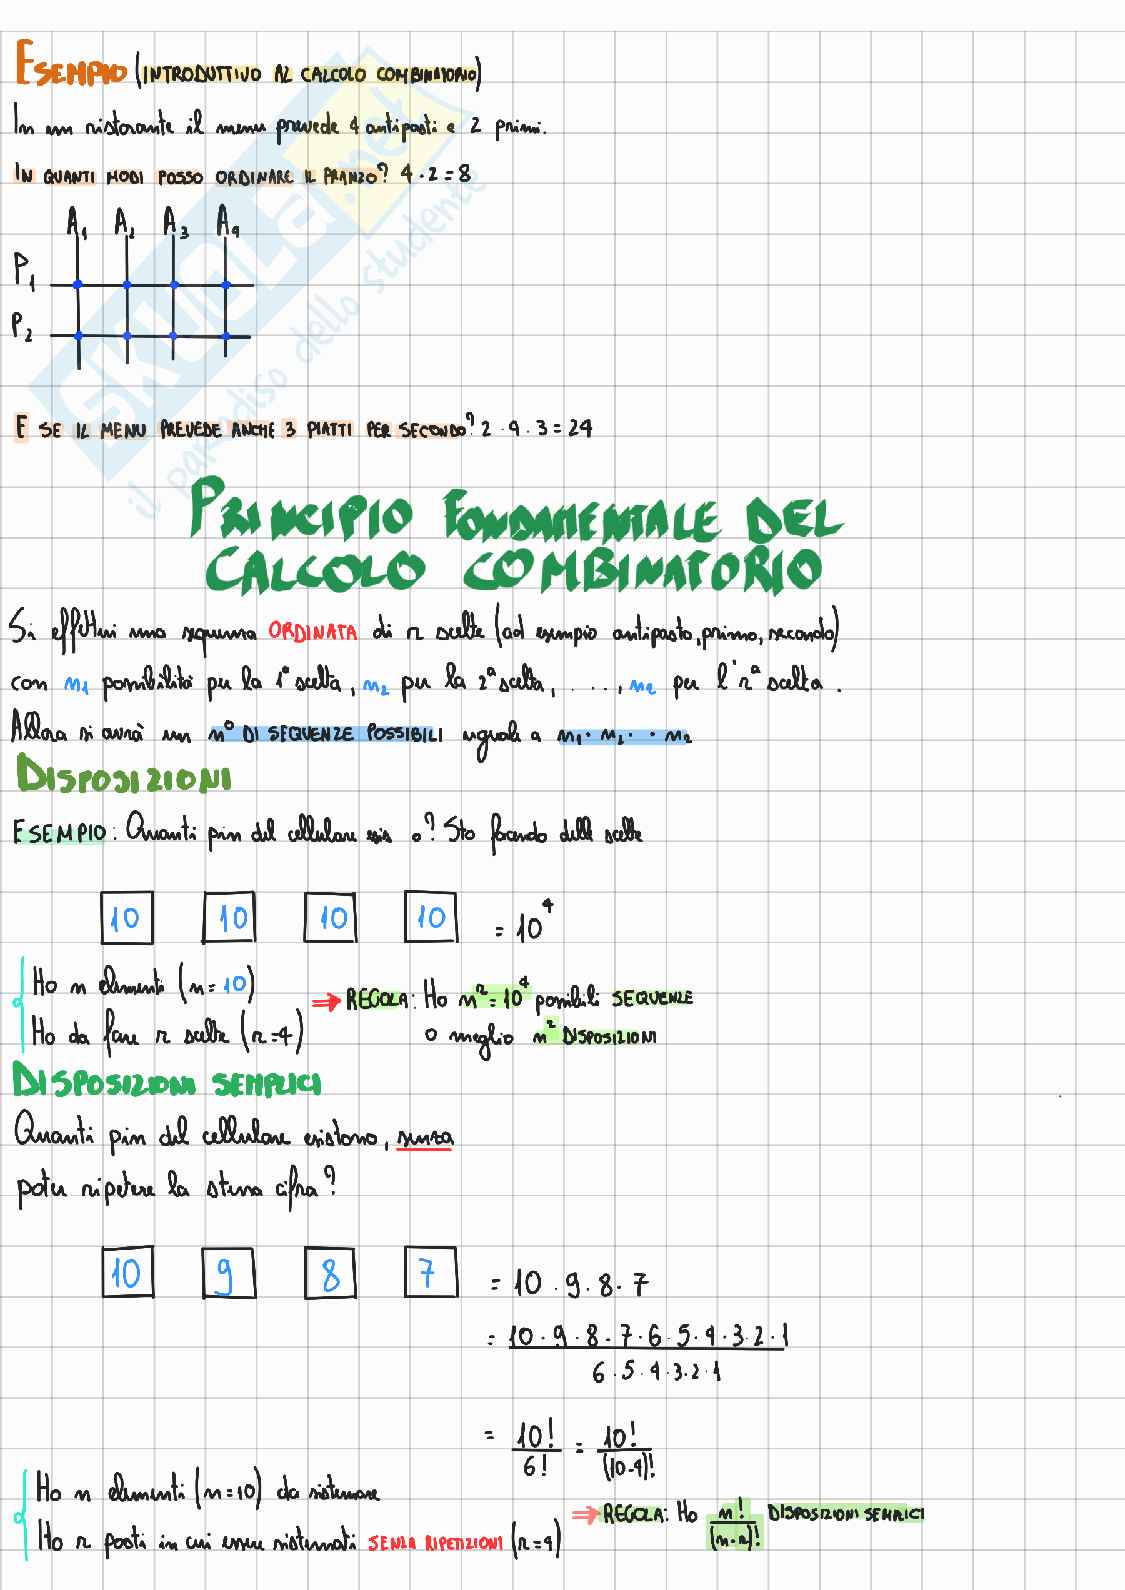 ESEMPIO (INTRODUTTIVO AL CALCOLO COMBINATORIO)
In un ristorante il menu prevede 4 antipasti e 2 primi.
IN QUANTI MODI POSSO ORDINARE IL PRANZO? 4 · 2 = 8
A₁ A₂ A₃ A₄
P₁
P₂
E SE IL MENU PREVEDE ANCHE 3 PIATTI PER SECONDO? 2 · 4 · 3 = 24
PRINCIPIO FONDAMENTALE DEL
CALCOLO COMBINATORIO
Si effettui una sequenza ORDINATA di r scelte (ad esempio antipasto, primo, secondo)
con n₁ possibilità per la 1ª scelta, n₂ per la 2ª scelta, ...., nr per l'rª scelta.
Allora si avrà un n° DI SEQUENZE POSSIBILI uguale a n₁ · n₂ · · nr
DISPOSIZIONI
ESEMPIO: Quanti pin del cellulare esis o? Sto facendo delle scelte
10 10 10 10 = 10⁴
Ho n elementi (n = 10)
Ho da fare r scelte (r = 4)
⇒ REGOLA: Ho nʳ = 10⁴ possibili SEQUENZE
o meglio nʳ DISPOSIZIONI
DISPOSIZIONI SEMPLICI
Quanti pin del cellulare esistono, senza
poter ripetere la stessa cifra?
10 9 8 7 = 10 · 9 · 8 · 7
= 10 · 9 · 8 · 7 · 6 · 5 · 4 · 3 · 2 · 1
6 · 5 · 4 · 3 · 2 · 1
= 10! / 6! = 10! / (10-4)!
Ho n elementi (n = 10) da sistemare
Ho r posti in cui essere sistemati SENZA RIPETIZIONI (r = 4)
⇒ REGOLA: Ho n! / (n-r)! DISPOSIZIONI SEMPLICI
SKUOLA.net
il paradiso dello studente